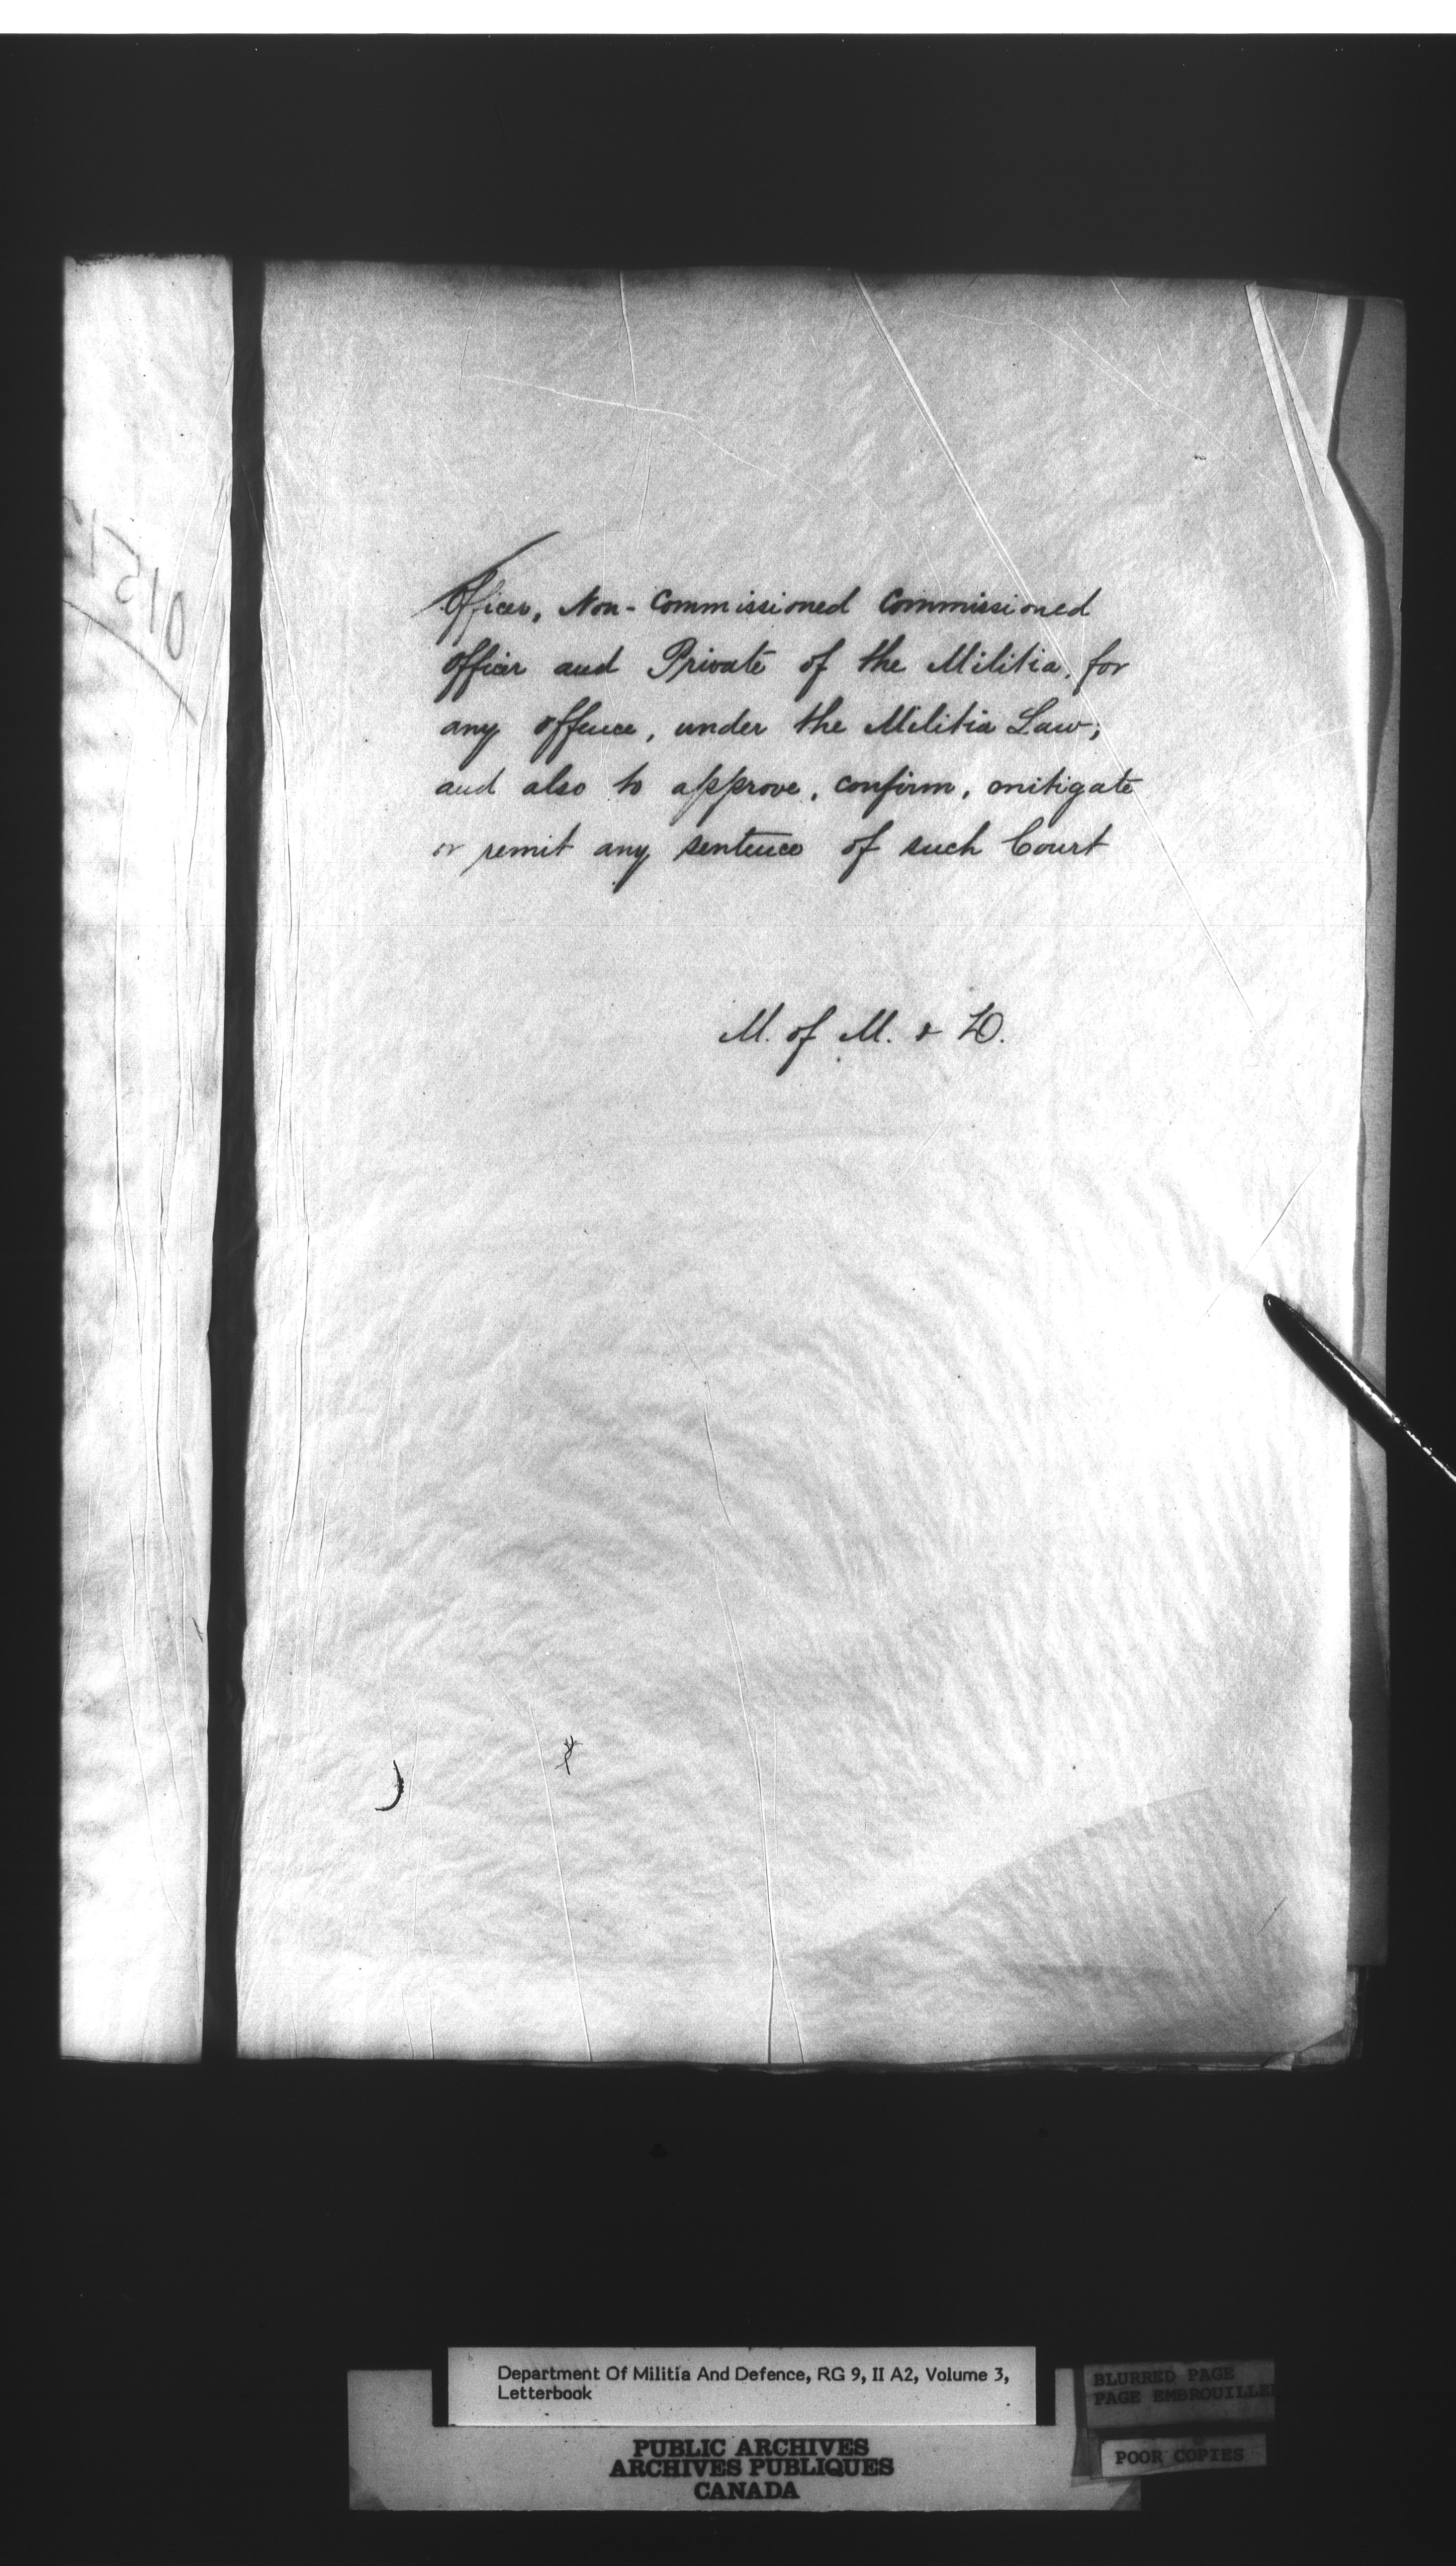 Officer, Non-Commissioned Commissioned
Officer and Private of the Militia, for
any offence, under the Militia Law;
and also to approve, confirm, mitigate
or remit any sentence of such Court
M. of M. & D.
Department Of Militia And Defence, RG 9, II A2, Volume 3,
Letterbook
PUBLIC ARCHIVES
ARCHIVES PUBLIQUES
CANADA
BLURRED PAGE
PAGE EMBROUILLE
POOR COPIES